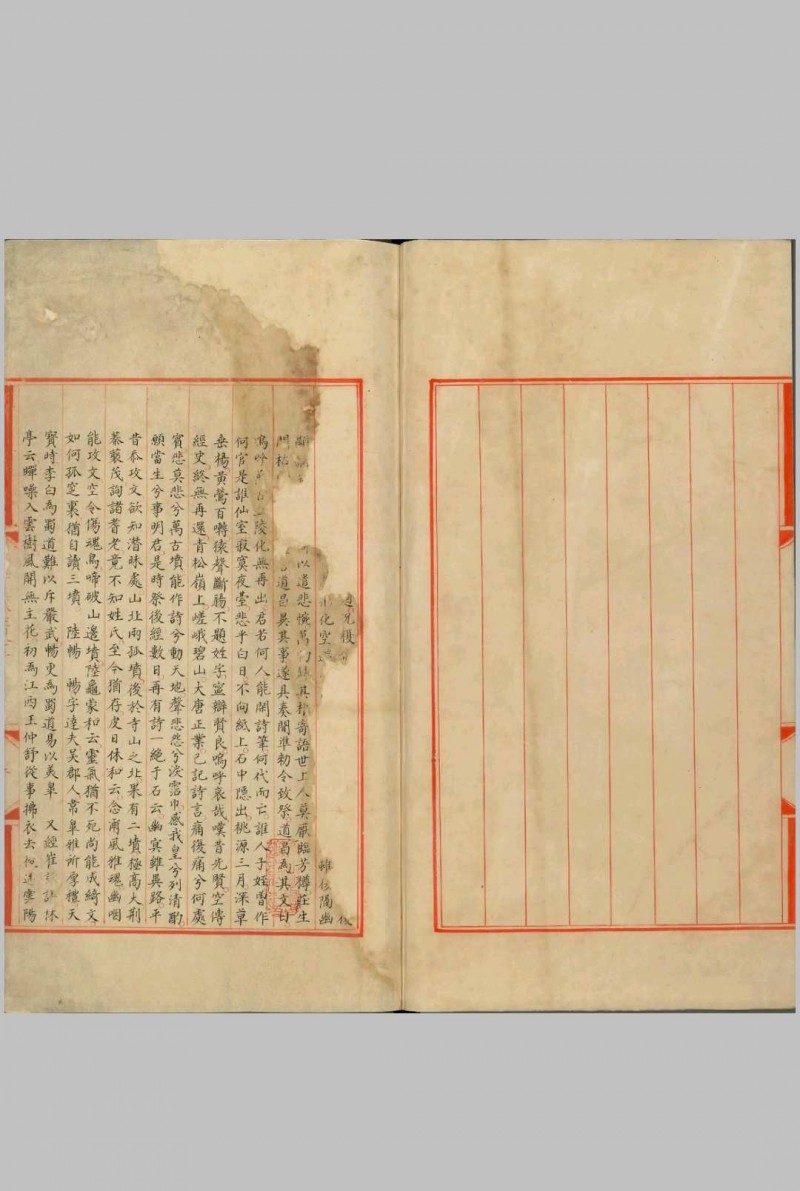 過見後
化空 雖後隔幽
以道悲惋萬 其 寄語世上人莫厭臨芳樽莊生
門 道昌異其事遂具奏聞準勑令致祭道昌為其文曰
嗚呼 陵化無再出君若何人能閑詩筆何代而亡誰人子姪曽作
何官是誰仙室寂寞夜臺悲乎白日不向紙上石中隠出桃源三月深草
垂楊黄鶯百囀猿聲斷腸不題姓字寧辯賢良嗚呼哀哉嘆昔先賢空傳
經史終無再還青松嶺上嵯峨碧山大唐正業已記詩言痛後痛兮何處
賓悲莫悲兮萬古墳能作詩兮動天地聲悲悲兮淚霑巾感我皇兮列清酌
願當生兮事明君是時祭後經數日再有詩一絶于石云幽冥雖異路平
昔忝攻文欲知潜昧處山北兩孤墳後於寺山之北果有二墳極髙大荆
蓁蘩茂詢諸耆老竟不知姓氏至今猶存皮日休和云念爾風雅魂幽咽
能攻文空令傷魂鳥啼破山邊墳陸龜蒙和云靈氣猶不死尚能成綺文
如何孤窆裏猶自讀三墳 陸暢 暢字達夫吴郡人常臯雅所厚禮天
寳時李白為蜀道難以斥嚴武暢更為蜀道易以美臯 又經崔 詳林
亭云蟬噪入雲樹風開無主花初為江西王仲舒從事拂衣去 遠雲陽